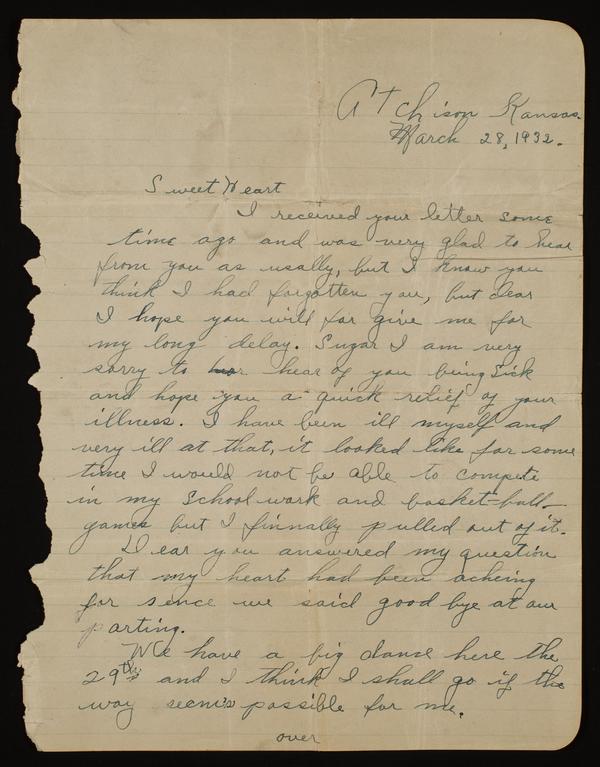 Atchison Kansas.
March 28, 1932.
Sweet Heart
I received your letter some
time ago and was very glad to hear
from you as usally, but I know you
think I had forgotten you, but Dear
I hope you will for give me for
my long delay. Sugar I am very
sorry to hear of you being Sick
and hope you a quick relief of your
illness. I have been ill myself and
very ill at that, it looked like for some
time I would not be able to compete
in my School work and basket-ball
games but I finnally pulled out of it.
Dear you answered my question
that my heart had been acheing
for sence we said good bye at our
parting.
We have a big dance here the
29th and I think I shall go if the
way seems possible for me.
over